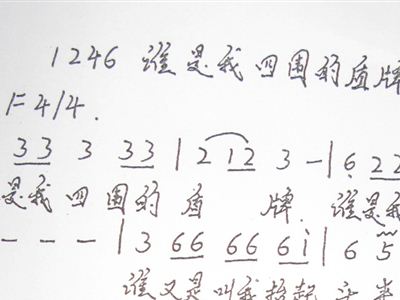 1246 谁是我四围的盾牌
1=4/4.
33 3 33 | 2 12 3 - | 6 22
是我 四 围的 盾 牌. 谁是我
- - - | 3 66 66 6i | 6 5
谁又是叫我抬起